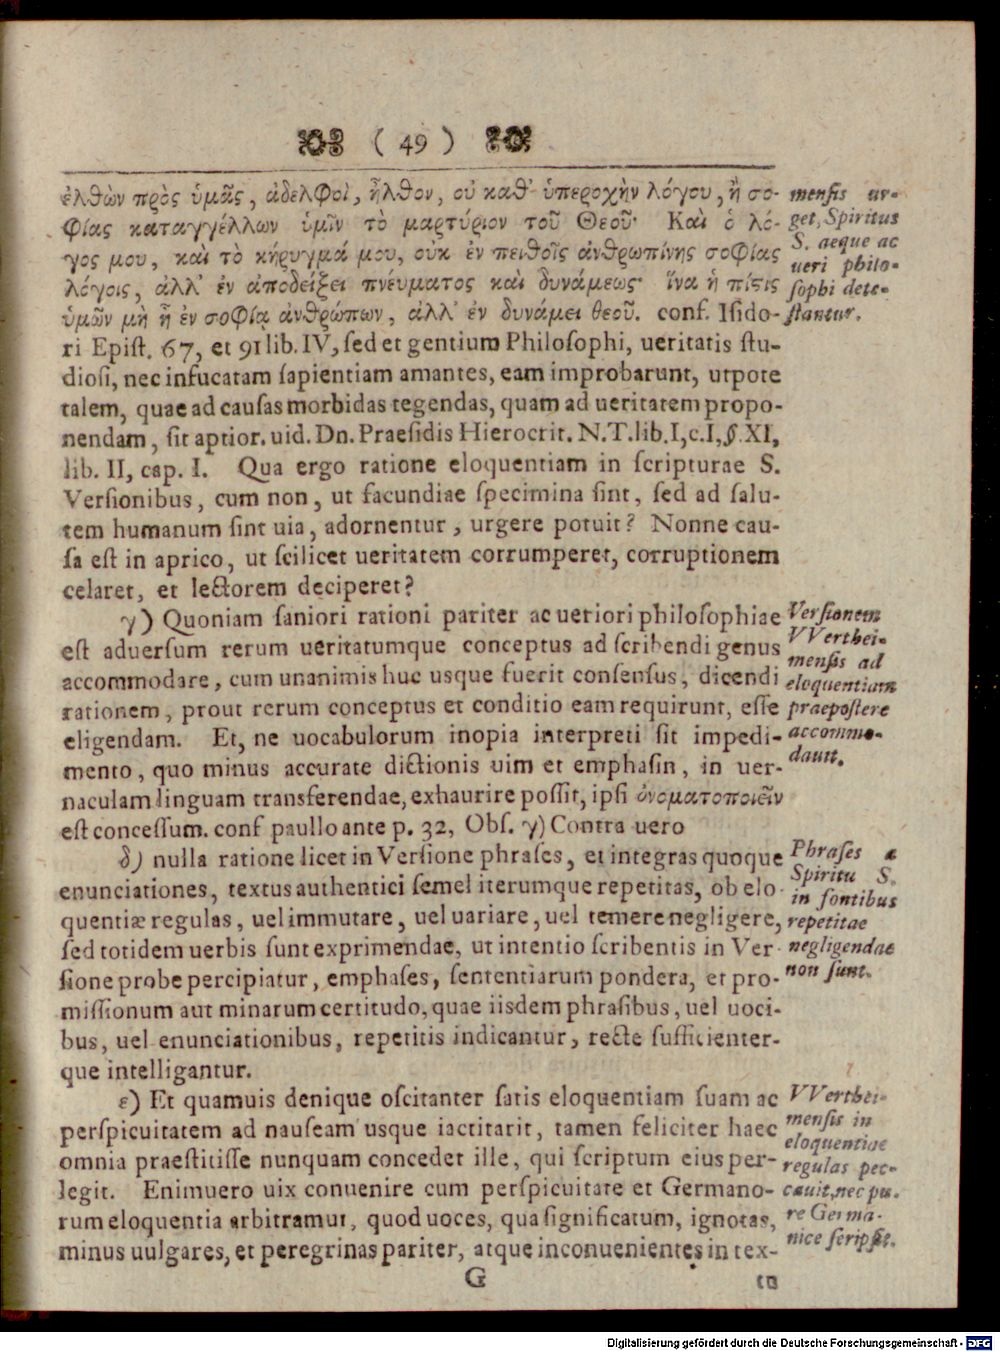 ( 49 )
ἐλθὼν πρὸς ὑμᾶς, ἀδελφοὶ, ἦλθον, οὐ καθ' ὑπεροχὴν λόγου, ἢ σο-
φίας καταγγέλλων ὑμῖν τὸ μαρτύριον τοῦ Θεοῦ· Καὶ ὁ λό-
γος μου, καὶ τὸ κήρυγμά μου, οὐκ ἐν πειθοῖς ἀνθρωπίνης σοφίας
λόγοις, ἀλλ' ἐν ἀποδείξει πνεύματος καὶ δυνάμεως· ἵνα ἡ πίστις
ὑμῶν μὴ ᾖ ἐν σοφίᾳ ἀνθρώπων, ἀλλ' ἐν δυνάμει θεοῦ. conf. Iſido-
ri Epiſt. 67, et 91 lib. IV, ſed et gentium Philoſophi, ueritatis ſtu-
dioſi, nec infucatam ſapientiam amantes, eam improbarunt, utpote
talem, quae ad cauſas morbidas tegendas, quam ad ueritatem propo-
nendam, ſit aptior. uid. Dn. Praeſidis Hierocrit. N.T. lib. I, c. I, §. XI,
lib. II, cap. I. Qua ergo ratione eloquentiam in ſcripturae S.
Verſionibus, cum non, ut facundiae ſpecimina ſint, ſed ad ſalu-
tem humanum ſint uia, adornentur, urgere potuit? Nonne cau-
ſa eſt in aprico, ut ſcilicet ueritatem corrumperet, corruptionem
celaret, et lectorem deciperet?
γ) Quoniam ſaniori rationi pariter ac ueriori philoſophiae
eſt aduerſum rerum ueritatumque conceptus ad ſcribendi genus
accommodare, cum unanimis huc usque fuerit conſenſus, dicendi
rationem, prout rerum conceptus et conditio eam requirunt, eſſe
eligendam. Et, ne uocabulorum inopia interpreti ſit impedi-
mento, quo minus accurate dictionis uim et emphaſin, in uer-
naculam linguam transferendae, exhaurire poſſit, ipſi ὀνοματοποιεῖν
eſt conceſſum. conf paullo ante p. 32, Obſ. γ) Contra uero
δ) nulla ratione licet in Verſione phraſes, et integras quoque
enunciationes, textus authentici ſemel iterumque repetitas, ob elo-
quentiæ regulas, uel immutare, uel uariare, uel temere negligere,
ſed totidem uerbis ſunt exprimendae, ut intentio ſcribentis in Ver-
ſione probe percipiatur, emphaſes, ſententiarum pondera, et pro-
miſſionum aut minarum certitudo, quae iisdem phraſibus, uel uoci-
bus, uel enunciationibus, repetitis indicantur, recte ſufficienter-
que intelligantur.
ε) Et quamuis denique oſcitanter ſatis eloquentiam ſuam ac
perſpicuitatem ad nauſeam usque iactitarit, tamen feliciter haec
omnia praeſtitiſſe nunquam concedet ille, qui ſcriptum eius per-
legit. Enimuero uix conuenire cum perſpicuitate et Germano-
rum eloquentia arbitramur, quod uoces, qua ſignificatum, ignotas,
minus uulgares, et peregrinas pariter, atque inconuenientes in tex-
G
tu
menſis ur-
get, Spiritus
S. aeque ac
ueri philo-
ſophi dete-
ſtantur.
Verſionem
VVerthei-
menſis ad
eloquentiam
praepoſtere
accommo-
dauit.
Phraſes a
Spiritu S.
in fontibus
repetitae
negligendae
non ſunt.
VVerthei-
menſis in
eloquentiae
regulas pec-
cauit, nec pu-
re Germa-
nice ſcripſit.
Digitalisierung gefördert durch die Deutsche Forschungsgemeinschaft - DFG